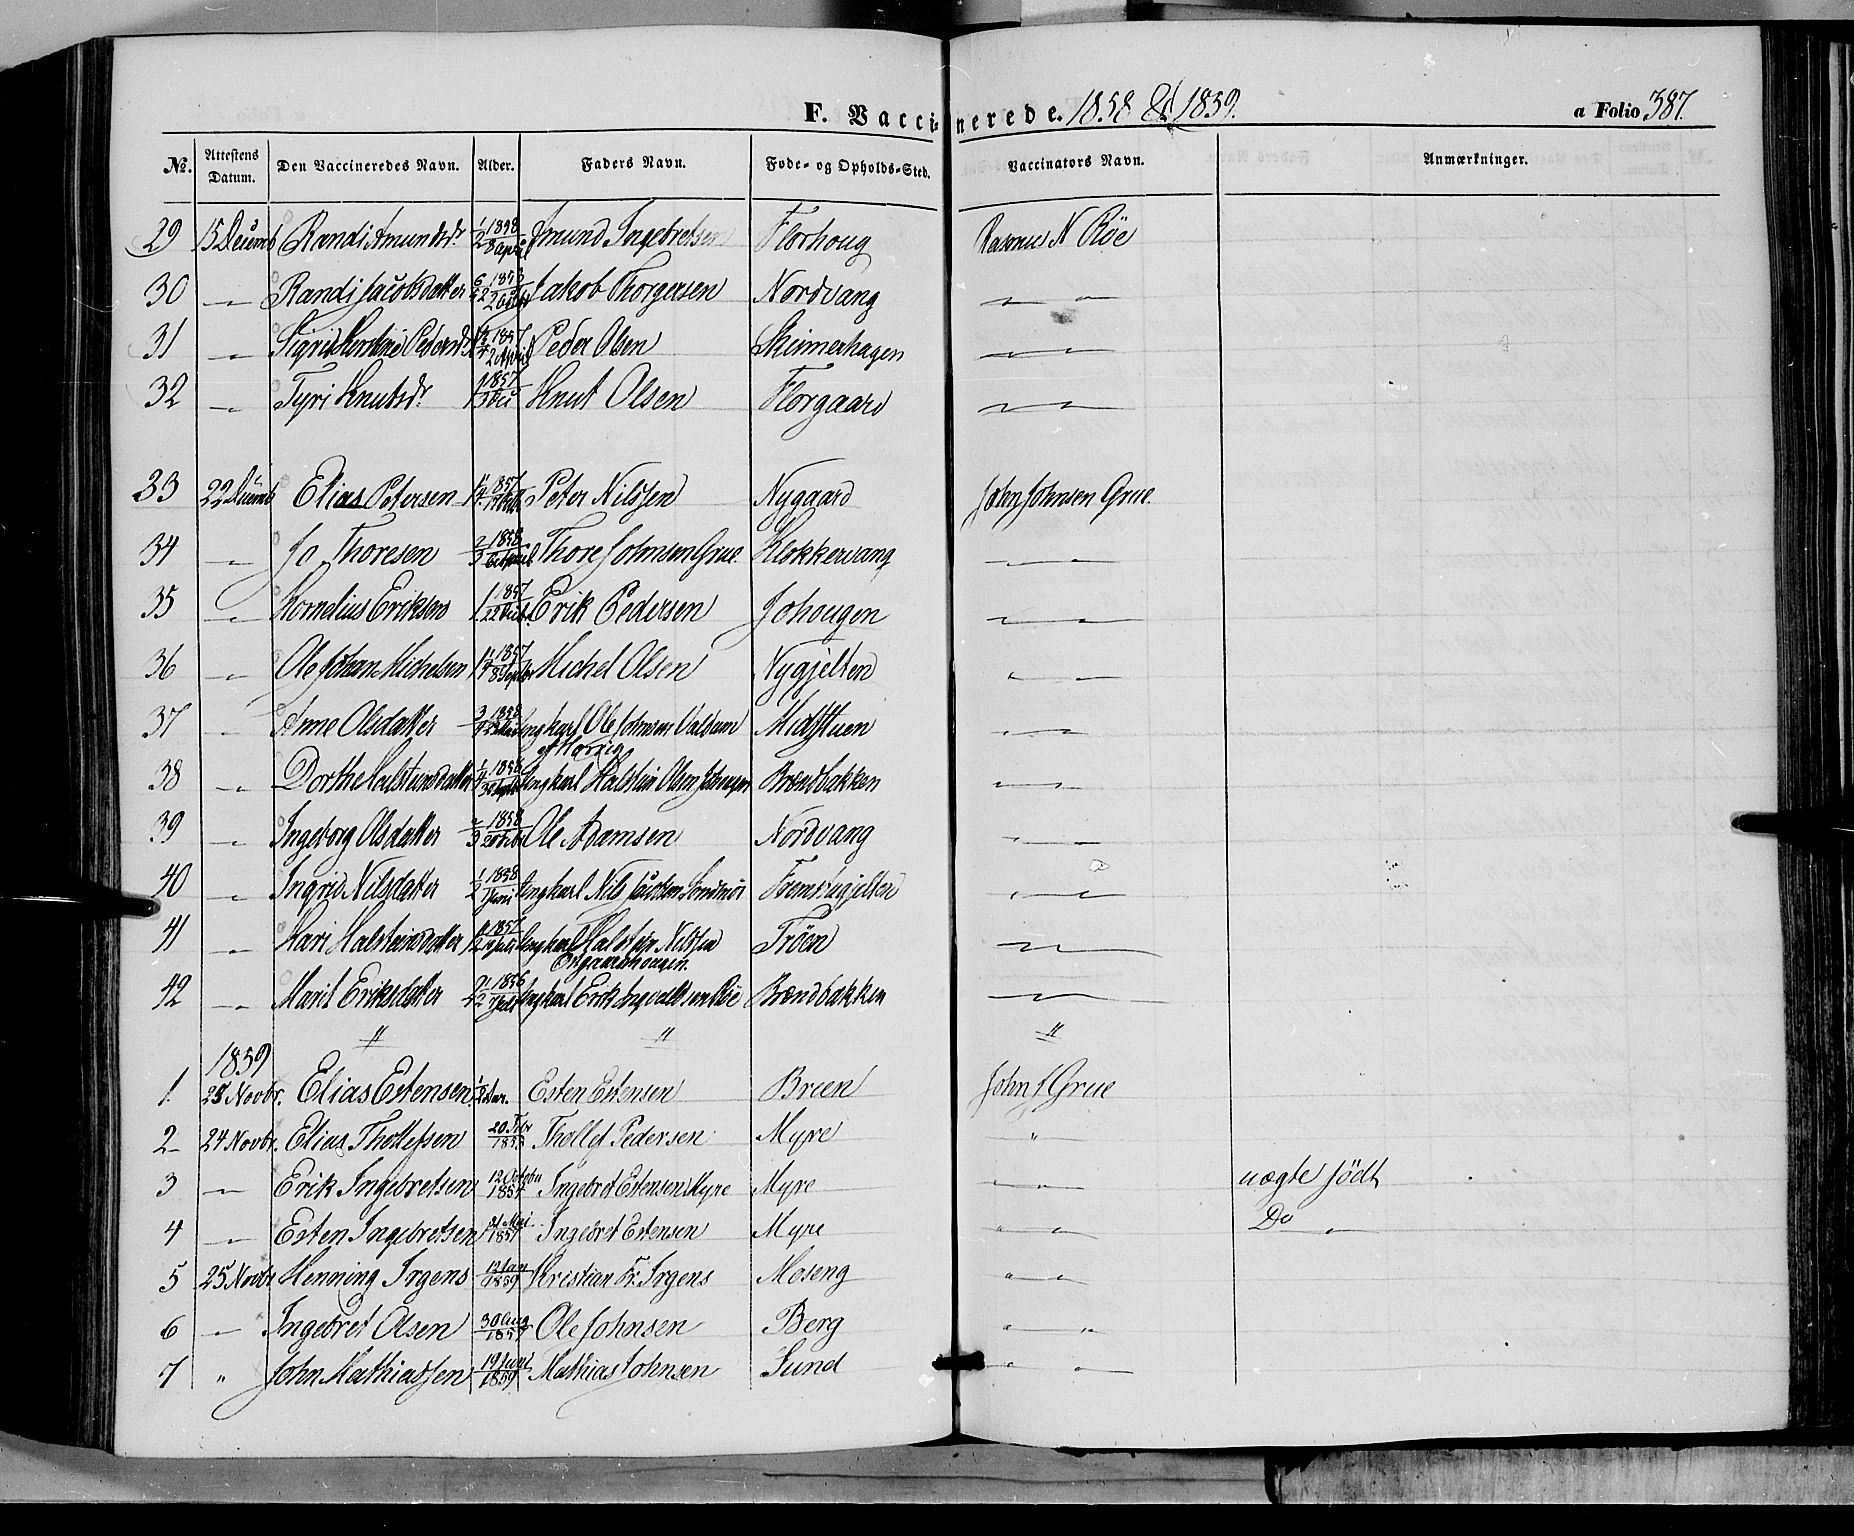 F. Vaccinerede. 1858 & 1859. a Folio 387.
No. Attestens Datum. Den Vaccineredes Navn. Alder. Faders Navn. Føde- og Opholds-Sted. Vaccinators Navn. Anmærkninger.
29 15 Decemb Randi Amundsdr. 1/2 1858 8 April Amund Ingebretsen Florhoug Rasmus N Röe
30 " Randi Jacobsdatter 1853 Jakob Thorgersen Nordvang " "
31 " Sigrid Pedersdr 1857 2 April Peder Olsen Skimerhagen " "
32 " Tyri Knutsdr. 1857 Knut Olsen Florgaard " "
33 22 Decemb Elias Petersen 1857 Peter Nilssen Nygaard John Johnsen Grue.
34 " Jo Thoresen 2/3 1858 6 April Thore Johnsen Grue. Klokkervang " "
35 " Kornelius Eriksen 1 1857 22 Erik Pedersen Johougen " "
36 " Ole Johan Michelsen 1857 8 Septbr Michel Olsen Nygjelten " "
37 " Anne Olsdatter 3/4 1858 Ungkarl Ole Johnsen Midtstuen " "
38 " Dorthe Halsteinsdatter 1/4 1858 Ungkarl Halstein Olsen Brændbakken " "
39 " Ingeborg Olsdatter 2/3 1858 Ole Adamsen Nordvang " "
40 " Ingrid Nilsdatter 1/2 1858 Juni Ungkarl Nils Jacobsen Fremstugjelten " "
41 " Kari Halsteinsdatter 1857 Juli Ungkarl Halstein Nilssen Tröen " "
42 " Marit Eriksdatter 1856 Juli Ungkarl Erik Ingvaldsen Röe Brændbakken " "
" " "
1859
1. 23 Novbr. Elias Estensen. 1/2 Aar. Esten Estensen Breen John J Grue
2 24 Novbr. Elias Thollefsen 20 Febr 1853 Thollef Pedersen Myre "
3 " Erik Ingebretsen 12 October 1857 Ingebret Estensen Myre Myre " " uægte födt
4 " Esten Ingebretsen 31 Mai 1857 Ingebret Estensen Myre " " Do "
5 25 Novbr Henning Irgens 12 Jan 1859 Kristian Fr. Irgens Moseng " "
6 " Ingebret Olsen 30 Aug 1857 Ole Johnsen Berg " "
7 " John Mathiassen 19 Juni 1859 Mathias Johnsen Sund " "